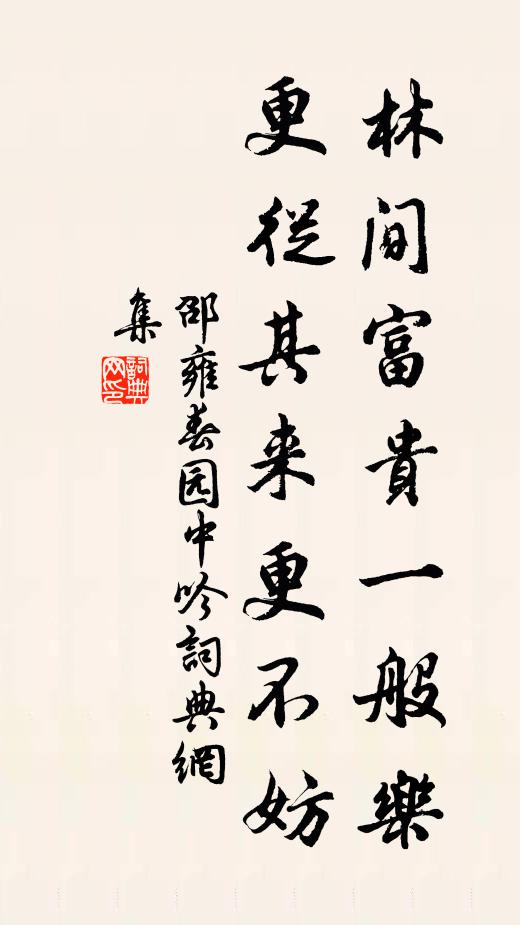 林間富貴一般樂
更從其来更不妨
邵雍春园中吟詞典網
集
詞典
网印